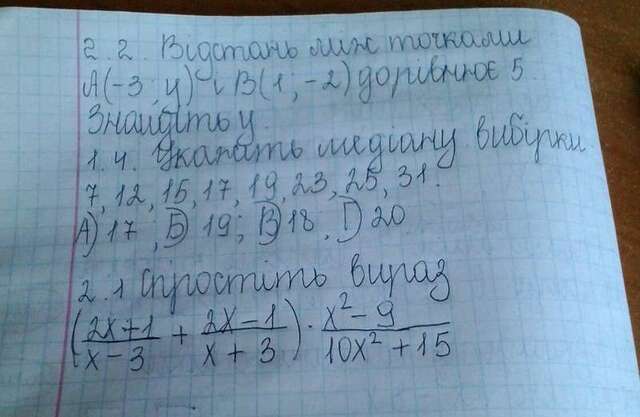 2.2. Відстань між точками
А(-3; y) і В(1, -2) дорівнює 5.
Знайдіть y.
1.4. Укажіть медіану вибірки
7, 12, 15, 17, 19, 23, 25, 31.
А) 17; Б) 19; В) 18, Г) 20
2.1 Спростіть вираз
(2x+1/x-3 + 2x-1/x+3) · x²-9/10x²+15